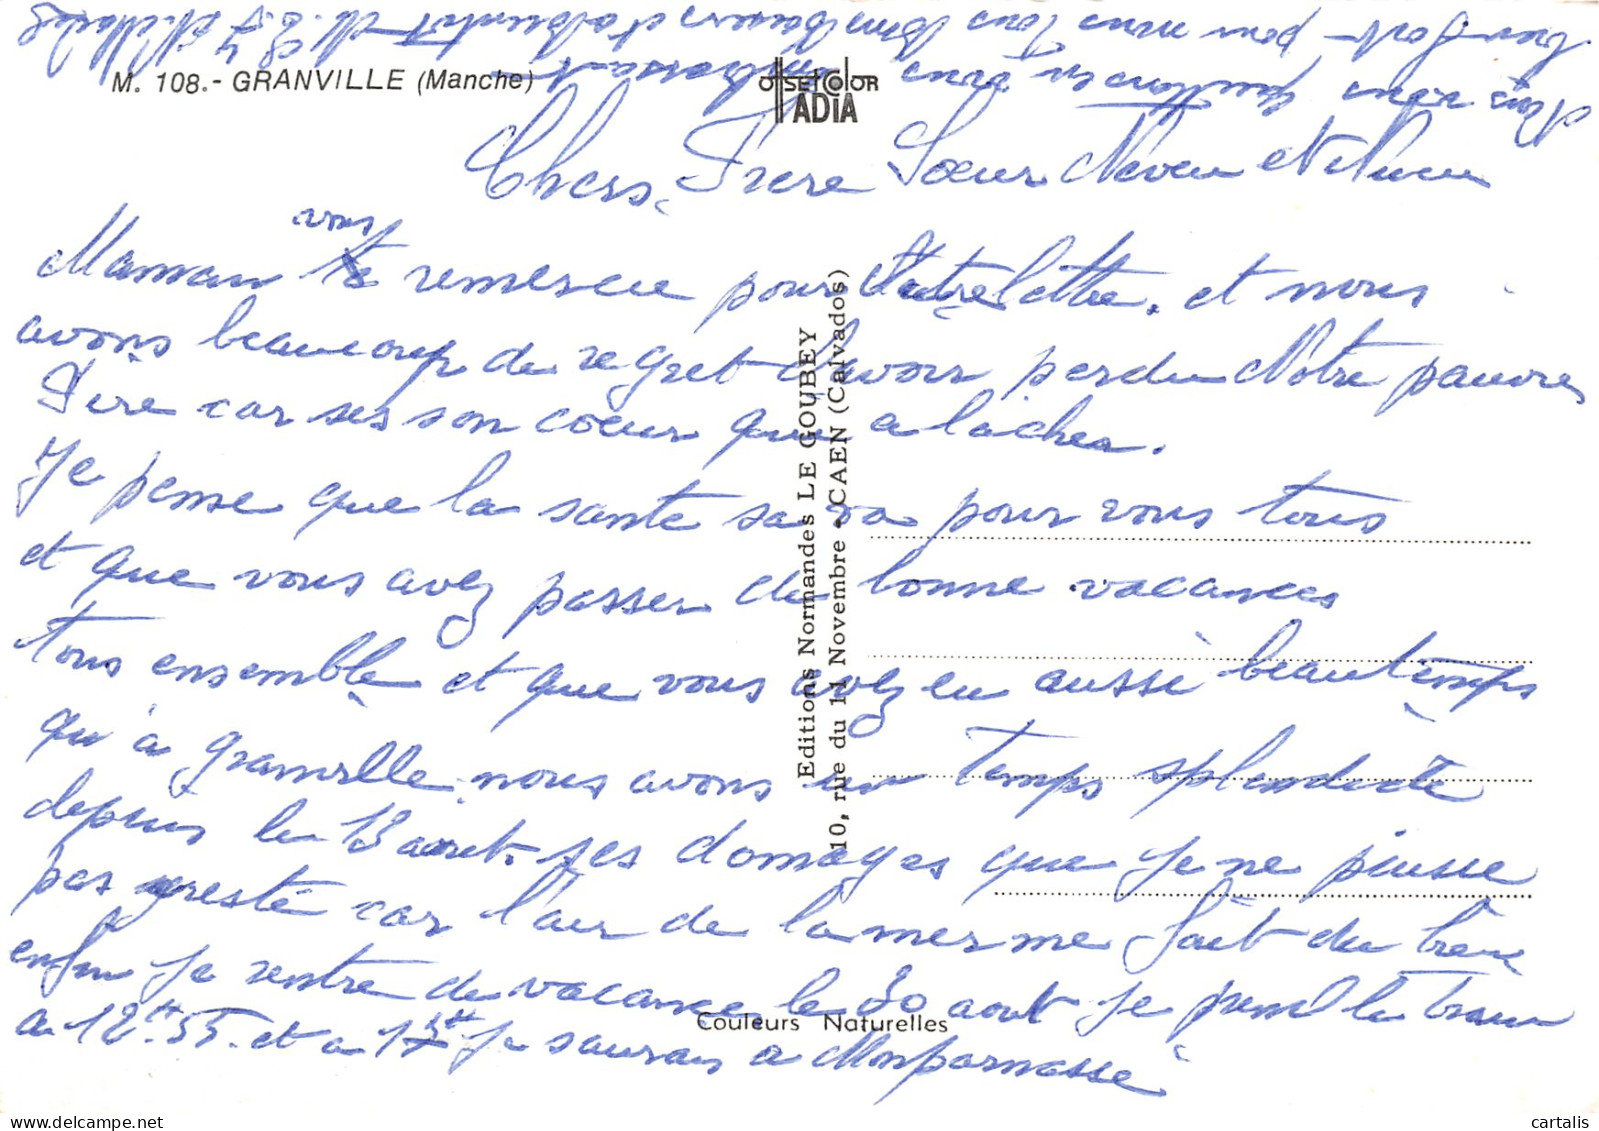 M. 108.- GRANVILLE (Manche)
OffSET COlOR
ADIA
Chers Frere Soeur Neveu et
vous
Maman remercie pour Vatre lettre. et nous
avons beaucoup de regret d'avoir perdu Notre pauvre
Père car ses son coeur qui a lacher.
Je pense que la sante sa va pour vous tous
et que vous avez passer de bonne vacances
tous ensemble et que vous avez eu aussi beau temps
qu'à granville nous avons un temps splendide
depuis le 13 aout. ses domages que je ne puisse
pas resté car l'air de la mer me fait du bien
enfin je rentre de vacance le 30 aout je prend le train
a 12H 55. et a je saurais a Monparnasse
Mais nous vous embrassant
bien fort pour nous tous Bons Baisers et a bientot
Editions Normandes LE GOUBEY
10, rue du 11 Novembre - CAEN (Calvados)
Couleurs Naturelles
cartalis